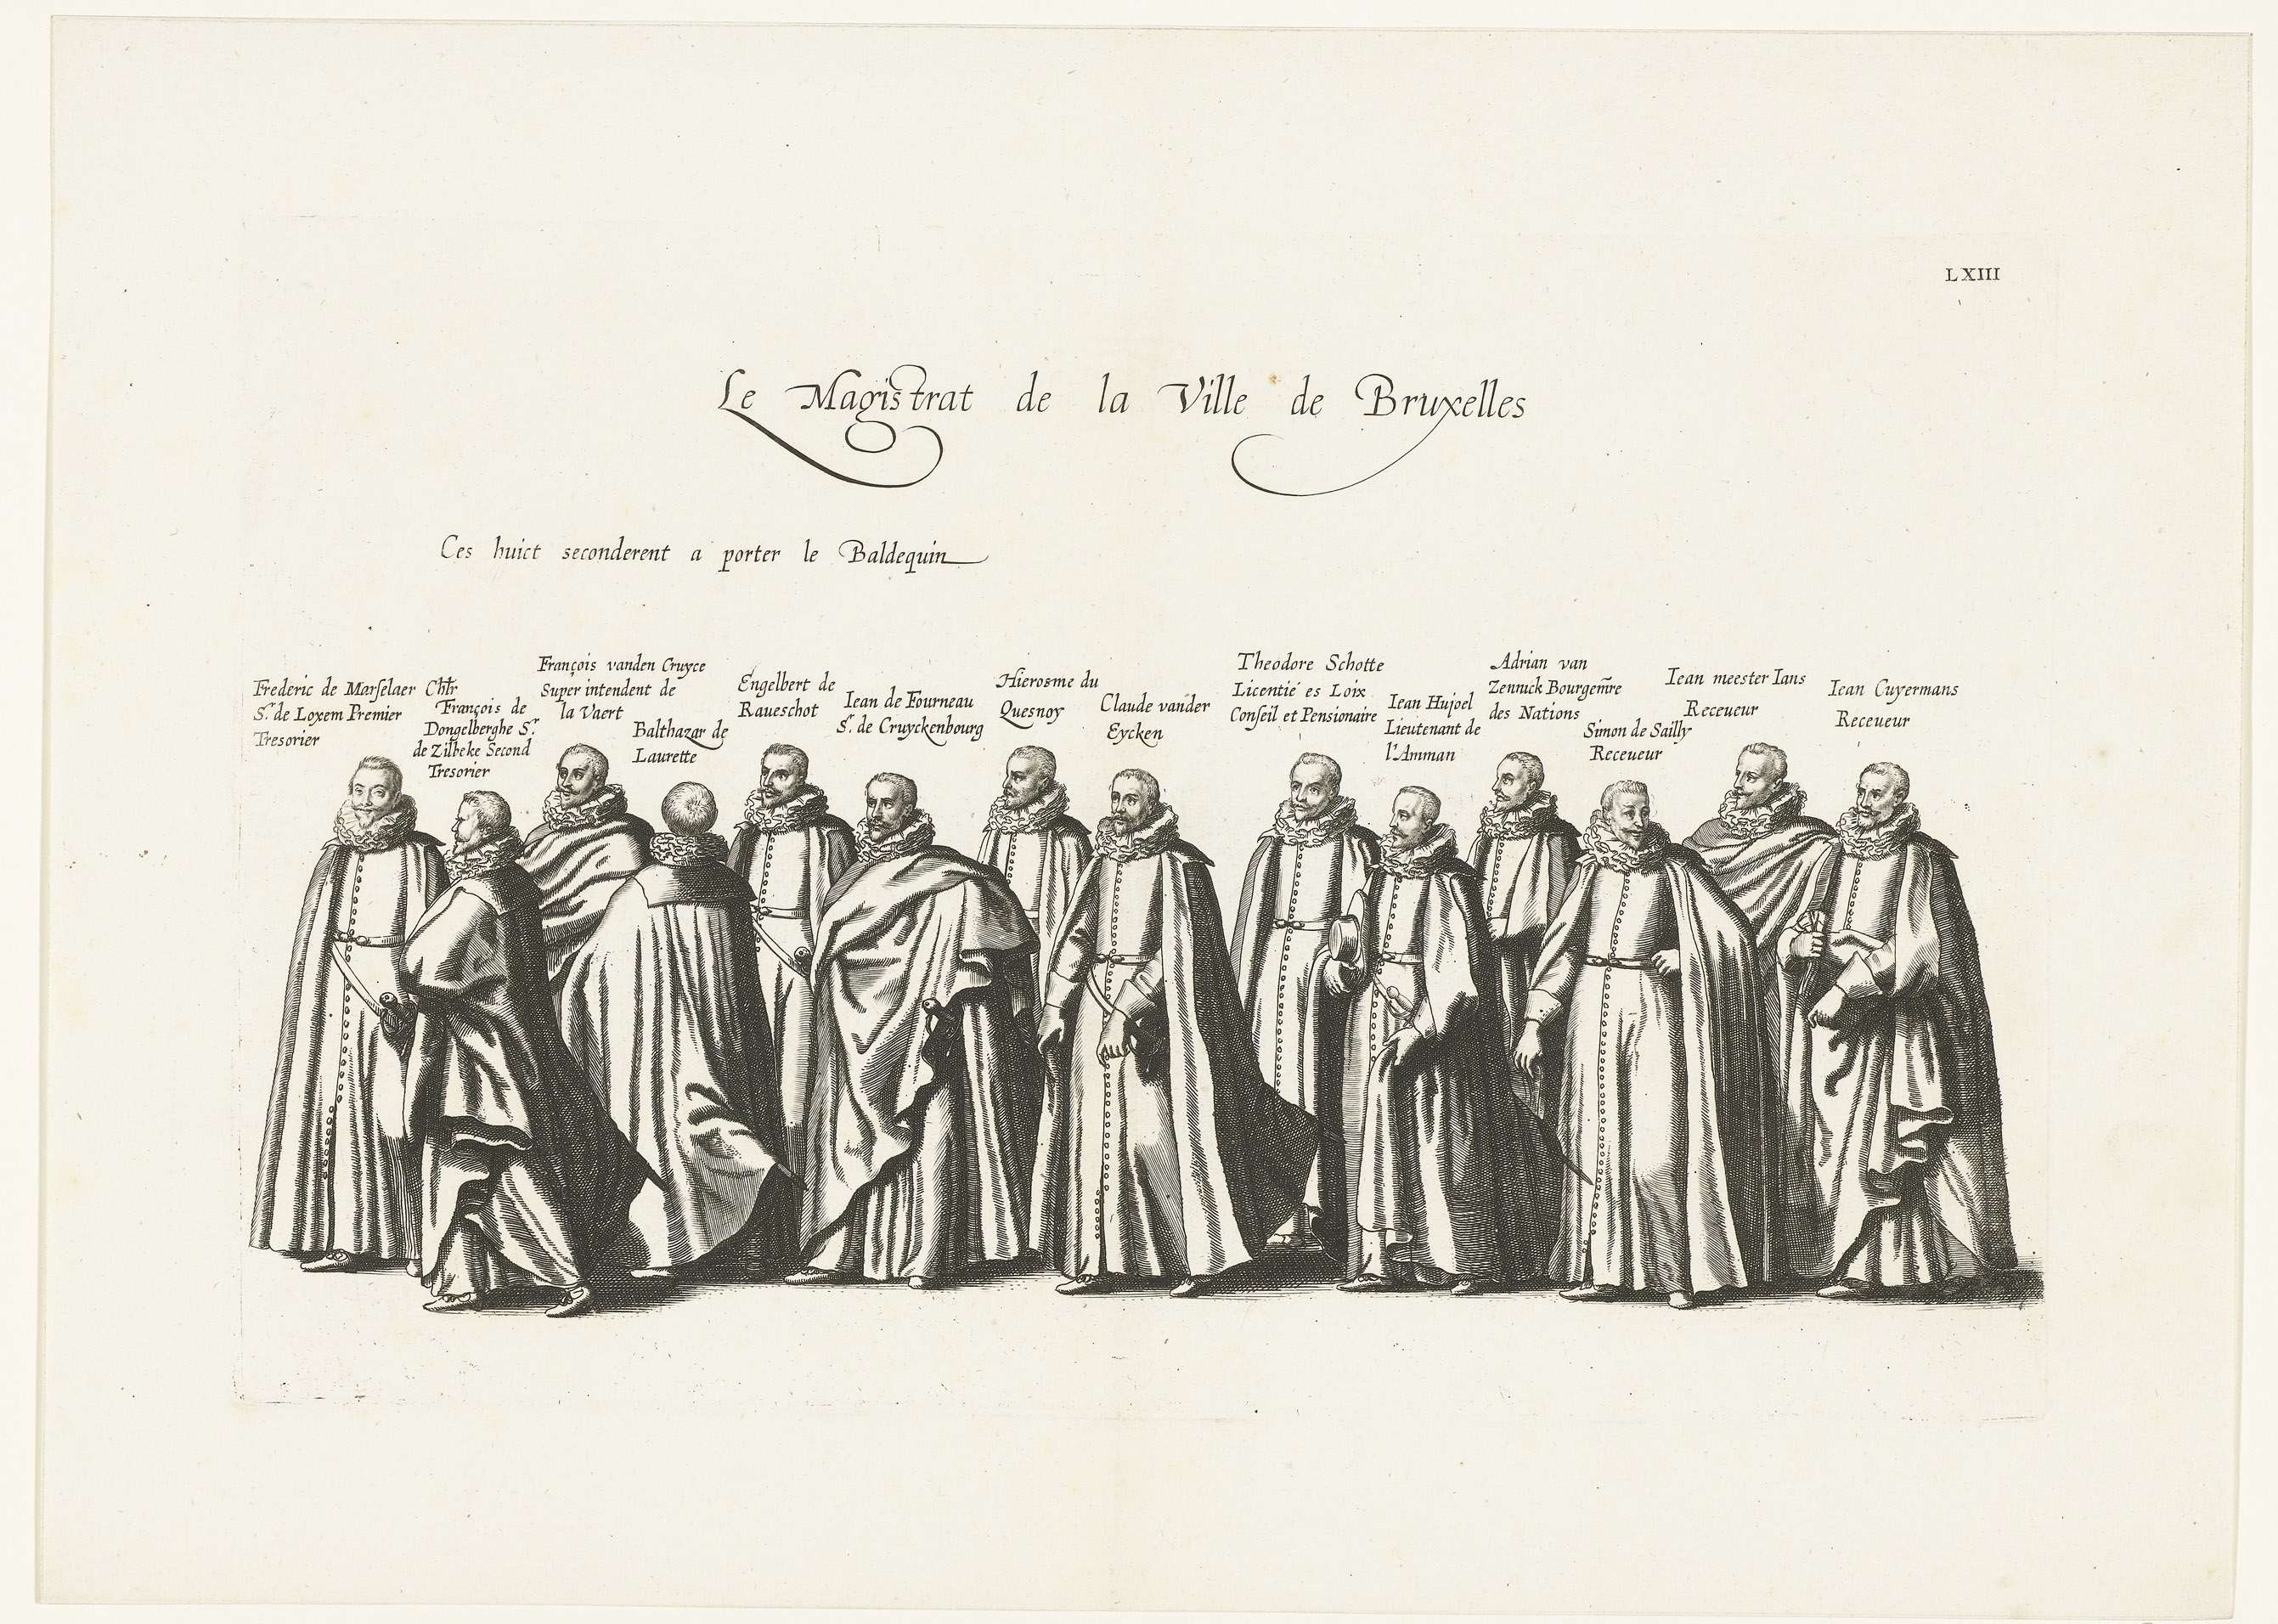 LXIII
Le Magistrat de la Ville de Bruxelles
Ces huict seconderent a porter le Baldequin
Frederic de Marselaer Chlr
Sr. de Loxem Premier
Tresorier
François de
Dongelberghe Sr.
de Zilbeke Second
Tresorier
François vanden Cruyce
Super intendent de
la Vaert
Balthazar de
Laurette
Engelbert de
Raueschot
Iean de Fourneau
Sr. de Cruyckenbourg
Hierosme du
Quesnoy
Claude vander
Eycken
Theodore Schotte
Licentié es Loix
Conseil et Pensionaire
Iean Hujoel
Lieutenant de
l'Amman
Adrian van
Zennick Bourgem̃re
des Nations
Simon de Sailly
Receueur
Iean meester Ians
Receueur
Iean Cuyermans
Receueur